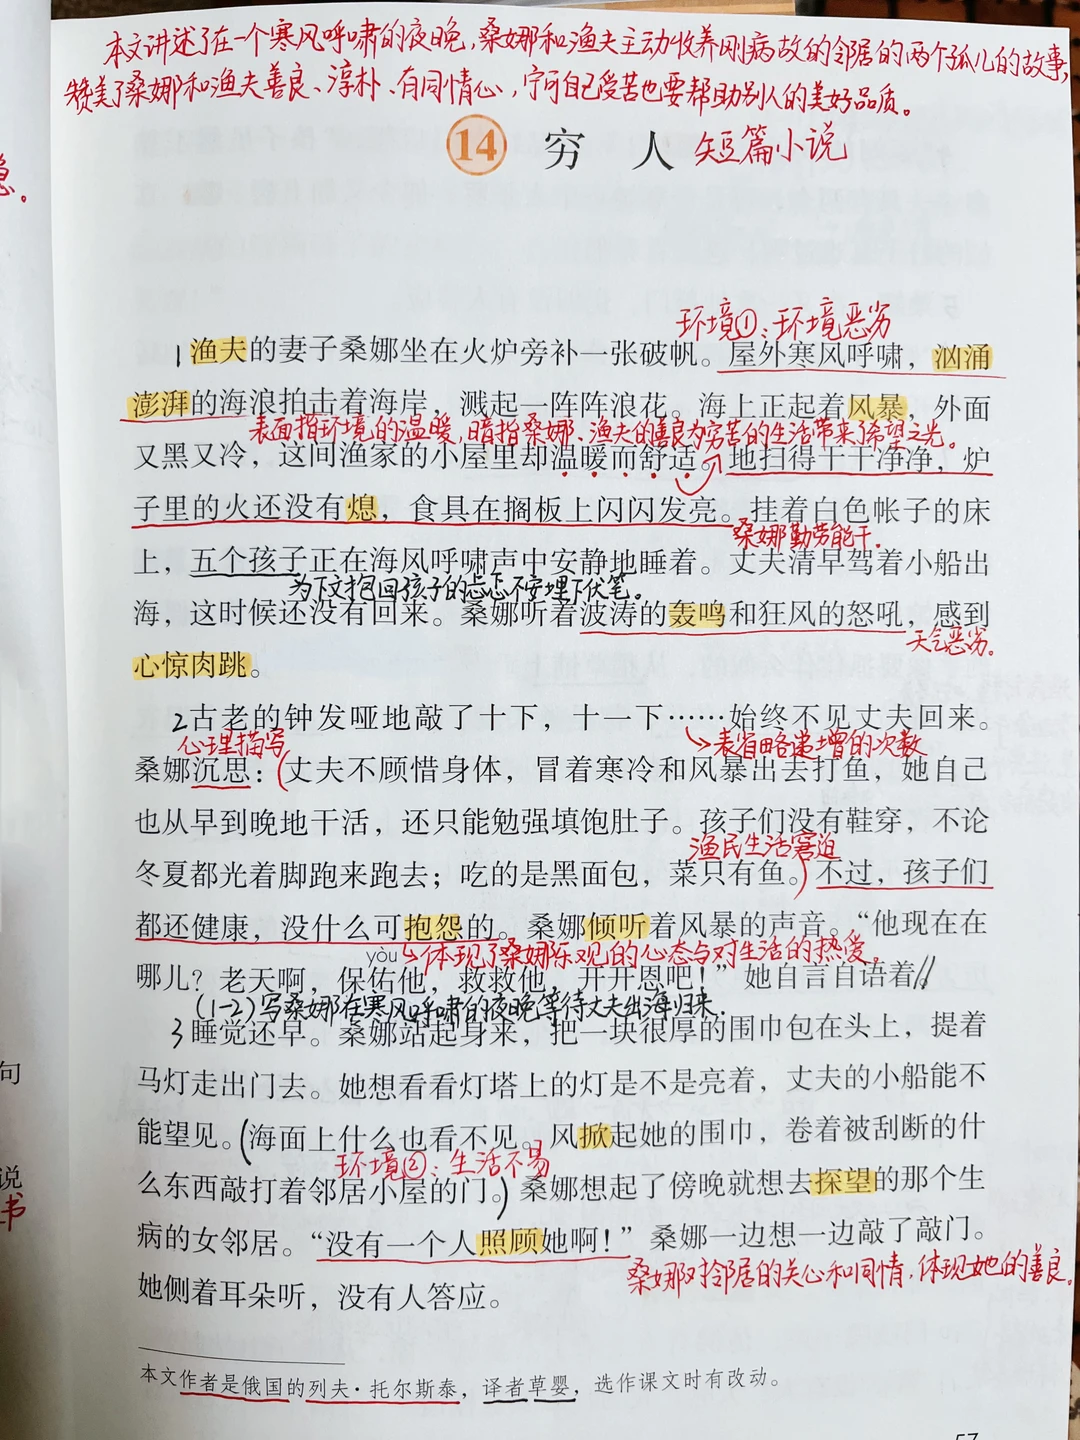 本文讲述了在一个寒风呼啸的夜晚，桑娜和渔夫主动收养刚病故的邻居的两个孤儿的故事，
赞美了桑娜和渔夫善良、淳朴、有同情心，宁可自己受苦也要帮助别人的美好品质。
14 穷 人 短篇小说
环境①：环境恶劣
1渔夫的妻子桑娜坐在火炉旁补一张破帆。屋外寒风呼啸，汹涌
澎湃的海浪拍击着海岸，溅起一阵阵浪花。海上正起着风暴，外面
表面指环境的温暖，暗指桑娜、渔夫的善良为穷苦的生活带来了希望之光。
又黑又冷，这间渔家的小屋里却温暖而舒适。地扫得干干净净，炉
子里的火还没有熄，食具在搁板上闪闪发亮。挂着白色帐子的床
桑娜勤劳能干。
上，五个孩子正在海风呼啸声中安静地睡着。丈夫清早驾着小船出
为下文抱回孩子的忐忑不安埋下伏笔。
海，这时候还没有回来。桑娜听着波涛的轰鸣和狂风的怒吼，感到
天气恶劣。
心惊肉跳。
2古老的钟发哑地敲了十下，十一下……始终不见丈夫回来。
心理描写
表省略递增的次数
桑娜沉思：(丈夫不顾惜身体，冒着寒冷和风暴出去打鱼，她自己
也从早到晚地干活，还只能勉强填饱肚子。孩子们没有鞋穿，不论
渔民生活窘迫
冬夏都光着脚跑来跑去；吃的是黑面包，菜只有鱼。)不过，孩子们
都还健康，没什么可抱怨的。桑娜倾听着风暴的声音。“他现在在
yòu
体现了桑娜乐观的心态与对生活的热爱。
哪儿？老天啊，保佑他，救救他，开开恩吧！”她自言自语着。//
(1-2)写桑娜在寒风呼啸的夜晚等待丈夫出海归来.
3睡觉还早。桑娜站起身来，把一块很厚的围巾包在头上，提着
马灯走出门去。她想看看灯塔上的灯是不是亮着，丈夫的小船能不
能望见。(海面上什么也看不见。风掀起她的围巾，卷着被刮断的什
环境②：生活不易
么东西敲打着邻居小屋的门。)桑娜想起了傍晚就想去探望的那个生
病的女邻居。“没有一个人照顾她啊！”桑娜一边想一边敲了敲门。
桑娜对邻居的关心和同情，体现她的善良。
她侧着耳朵听，没有人答应。
本文作者是俄国的列夫·托尔斯泰，译者草婴，选作课文时有改动。
句
说
书